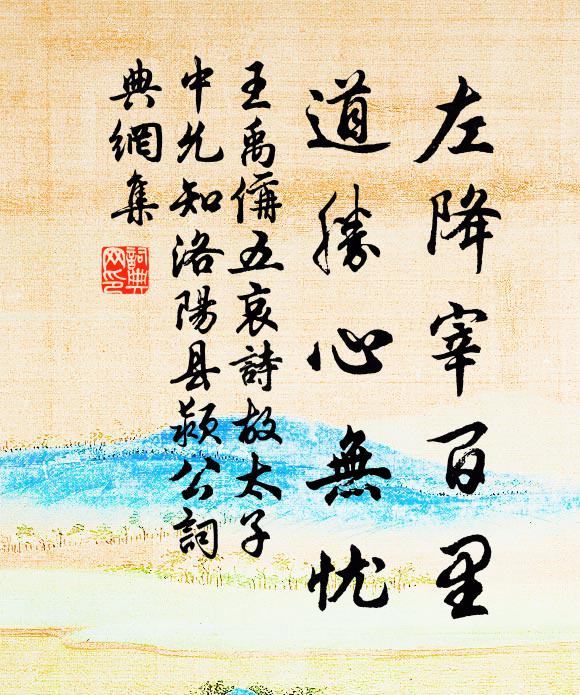 左降宰百里
道勝心無忧
王禹偁五哀詩故太子
中允知洛陽县颍公詞
典網集
詞典
网印